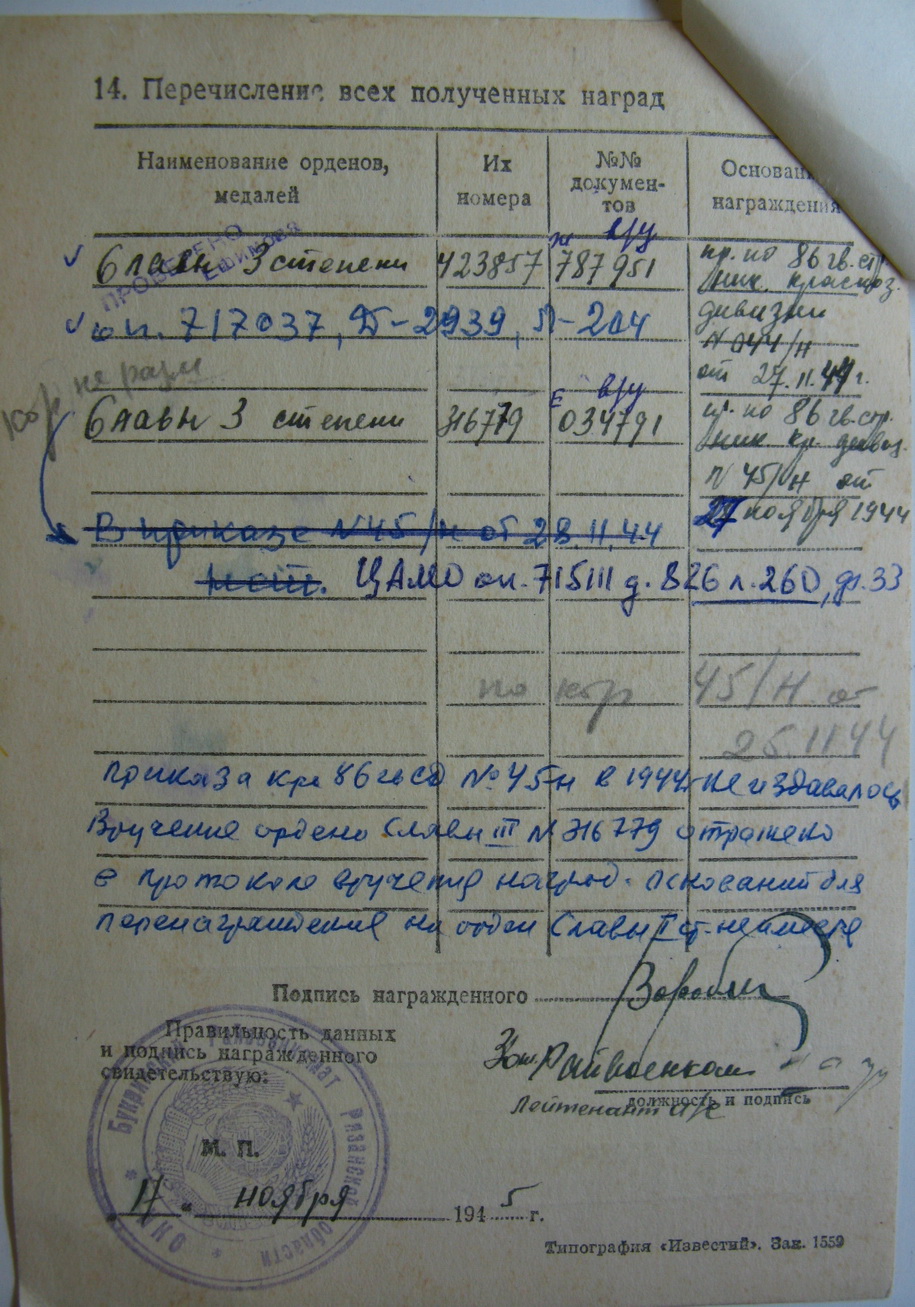 14. Перечисление всех полученных наград
Наименование орденов, медалей
Их номера
№№ докумен-тов
Основани
награждения
ПРОВЕРЕНО
в/у
Славы 3 степени 423857 787951 пр. по 86 гв. стр.
дивизии
оп. 717037, Д-2939, Л-204
N 044/н
от 27.11.44 г.
не разм
в/у
Славы 3 степени 316779 034791 пр. по 86 гв. стр.
N 45/н от
27 ноября 1944
В приказе N45/н от 28.11.44
нет. ЦАМО оп. 715111 д. 826 л. 260, ф. 33
по кор 45/н от
25.11.44
приказа кра 86 гв сд № 45н в 1944 не издавалось
Вручение ордена Славы III N 316779 отражено
в протоколе вручения наград. Оснований для
перенаграждения на орден Славы ст. не имеется
Подпись награжденного
Правильность данных
и подпись награжденного
свидетельствую:
Зам. Райвоенком
должность и подпись
Лейтенант а/с
Райвоенкомат Рязанской области
М. П.
„17 “ ноября 1945 г.
Типография «Известий». Зак. 1559